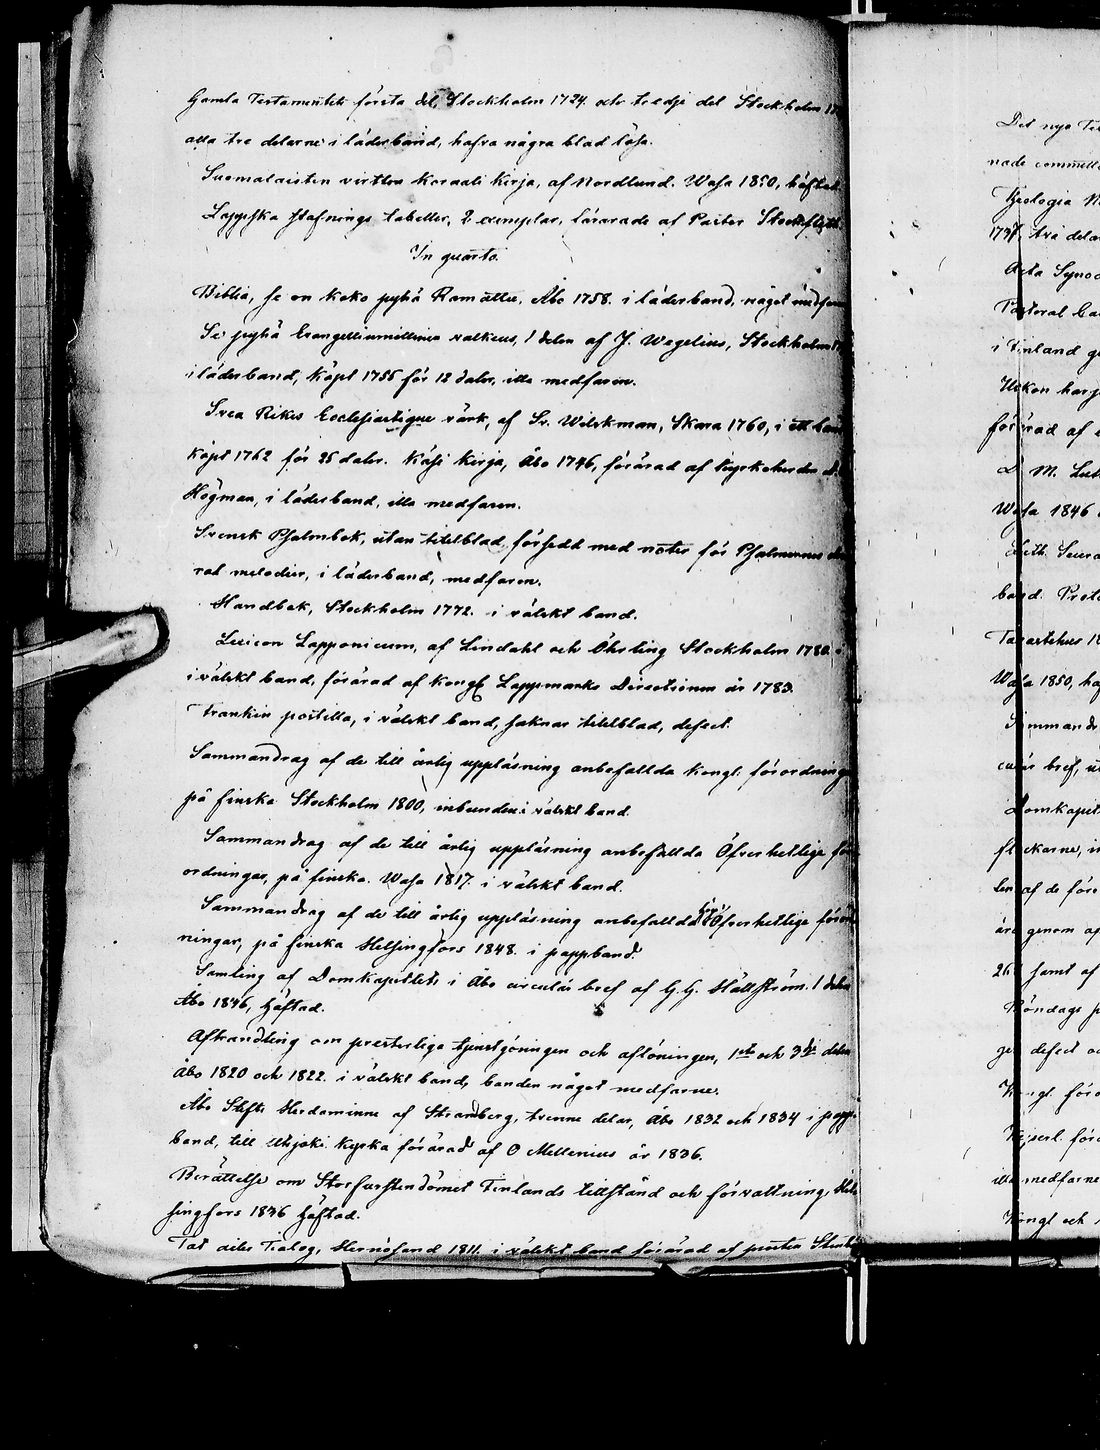 Gamla Testamentets första del, Stockholm 1724. och tredje del Stockholm
alla tre delarne i läderband, hafva några blad lösa.
Suomalaisten virtten Koraali Kirja, af Nordlund. Wasa 1850, häftad.
Lappska stafnings tabeller, 2 exemplar, förärade af Pastor Stockfleth.
In quarto.
Biblia, se on Koko pyhä Ramattu, Åbo 1758. i läderband, något medfaren
Se pyhä Evangeliumillinen valkeus, I delen af J. Wegelius, Stockholm
i läderband, köpt 1755 för 12 daler, illa medfaren.
Svea Rikes Ecclesiastique värk, af Sv. Wilskman, Skara 1760, i ett band
köpt 1762 för 25 daler. Käsi Kirja, Åbo 1746, förärad af Kyrkoherden
Högman, i läderband, illa medfaren.
Svensk Psalmbok, utan titelblad, försedt med noter för Psalmernes
ral melodier, i läderband, medfaren.
Handbok, Stockholm 1772. i välskt band.
Lexicon Lapponicum, af Lindahl och Öhrling Stockholm 1780
i välskt band, förärad af Kongl. Lappmarks Directionen år 1783.
Franken postilla, i välskt band, saknar titelblad, defect.
Sammandrag af de till årlig uppläsning anbefallda Kongl. förordningar
på finska Stockholm 1800, inbunden i välskt band.
Sammandrag af de till årlig uppläsning anbefallda Öfverhetliga för
ordningar, på finska. Wasa 1817. i välskt band.
Sammandrag af de till årlig uppläsning anbefallda Öfverhetlige förord
ningar, på finska Helsingfors 1848. i pappband.
Samling af Domkapitlets i Åbo circulär bref af G.G. Hällström. I delen
Åbo 1836, häftad.
Afhandling om presterliga tjenstgöringen och aflöningen, 1sta och 3dje delen
Åbo 1820 och 1822. i välskt band, banden något medfarne.
Åbo Stifts Herdaminne af Strandberg, tvenne delar, Åbo 1832 och 1834 i papp
band, till Utsjoki Kyrka förärad af O Mellenius år 1836.
Berättelse om Storfurstendömet Finlands tillstånd och förvaltning, Hel
singfors 1836 häftad.
Tat ailes Tialog, Hernösand 1811. i välskt band förärad af pastor
Det nya
nade
Theologia
1791, två
Acta
Pastoral
i Finland
Uskon
förärad af
D. M.
Wasa 1846
band.
Tavastehus
Wasa 1850,
Sammandr
culär bref,
Domkapit
len af de
genom
26 samt af
Böndags
defect
Kongl.
Kejserl.
illa medfarne
Kongl och